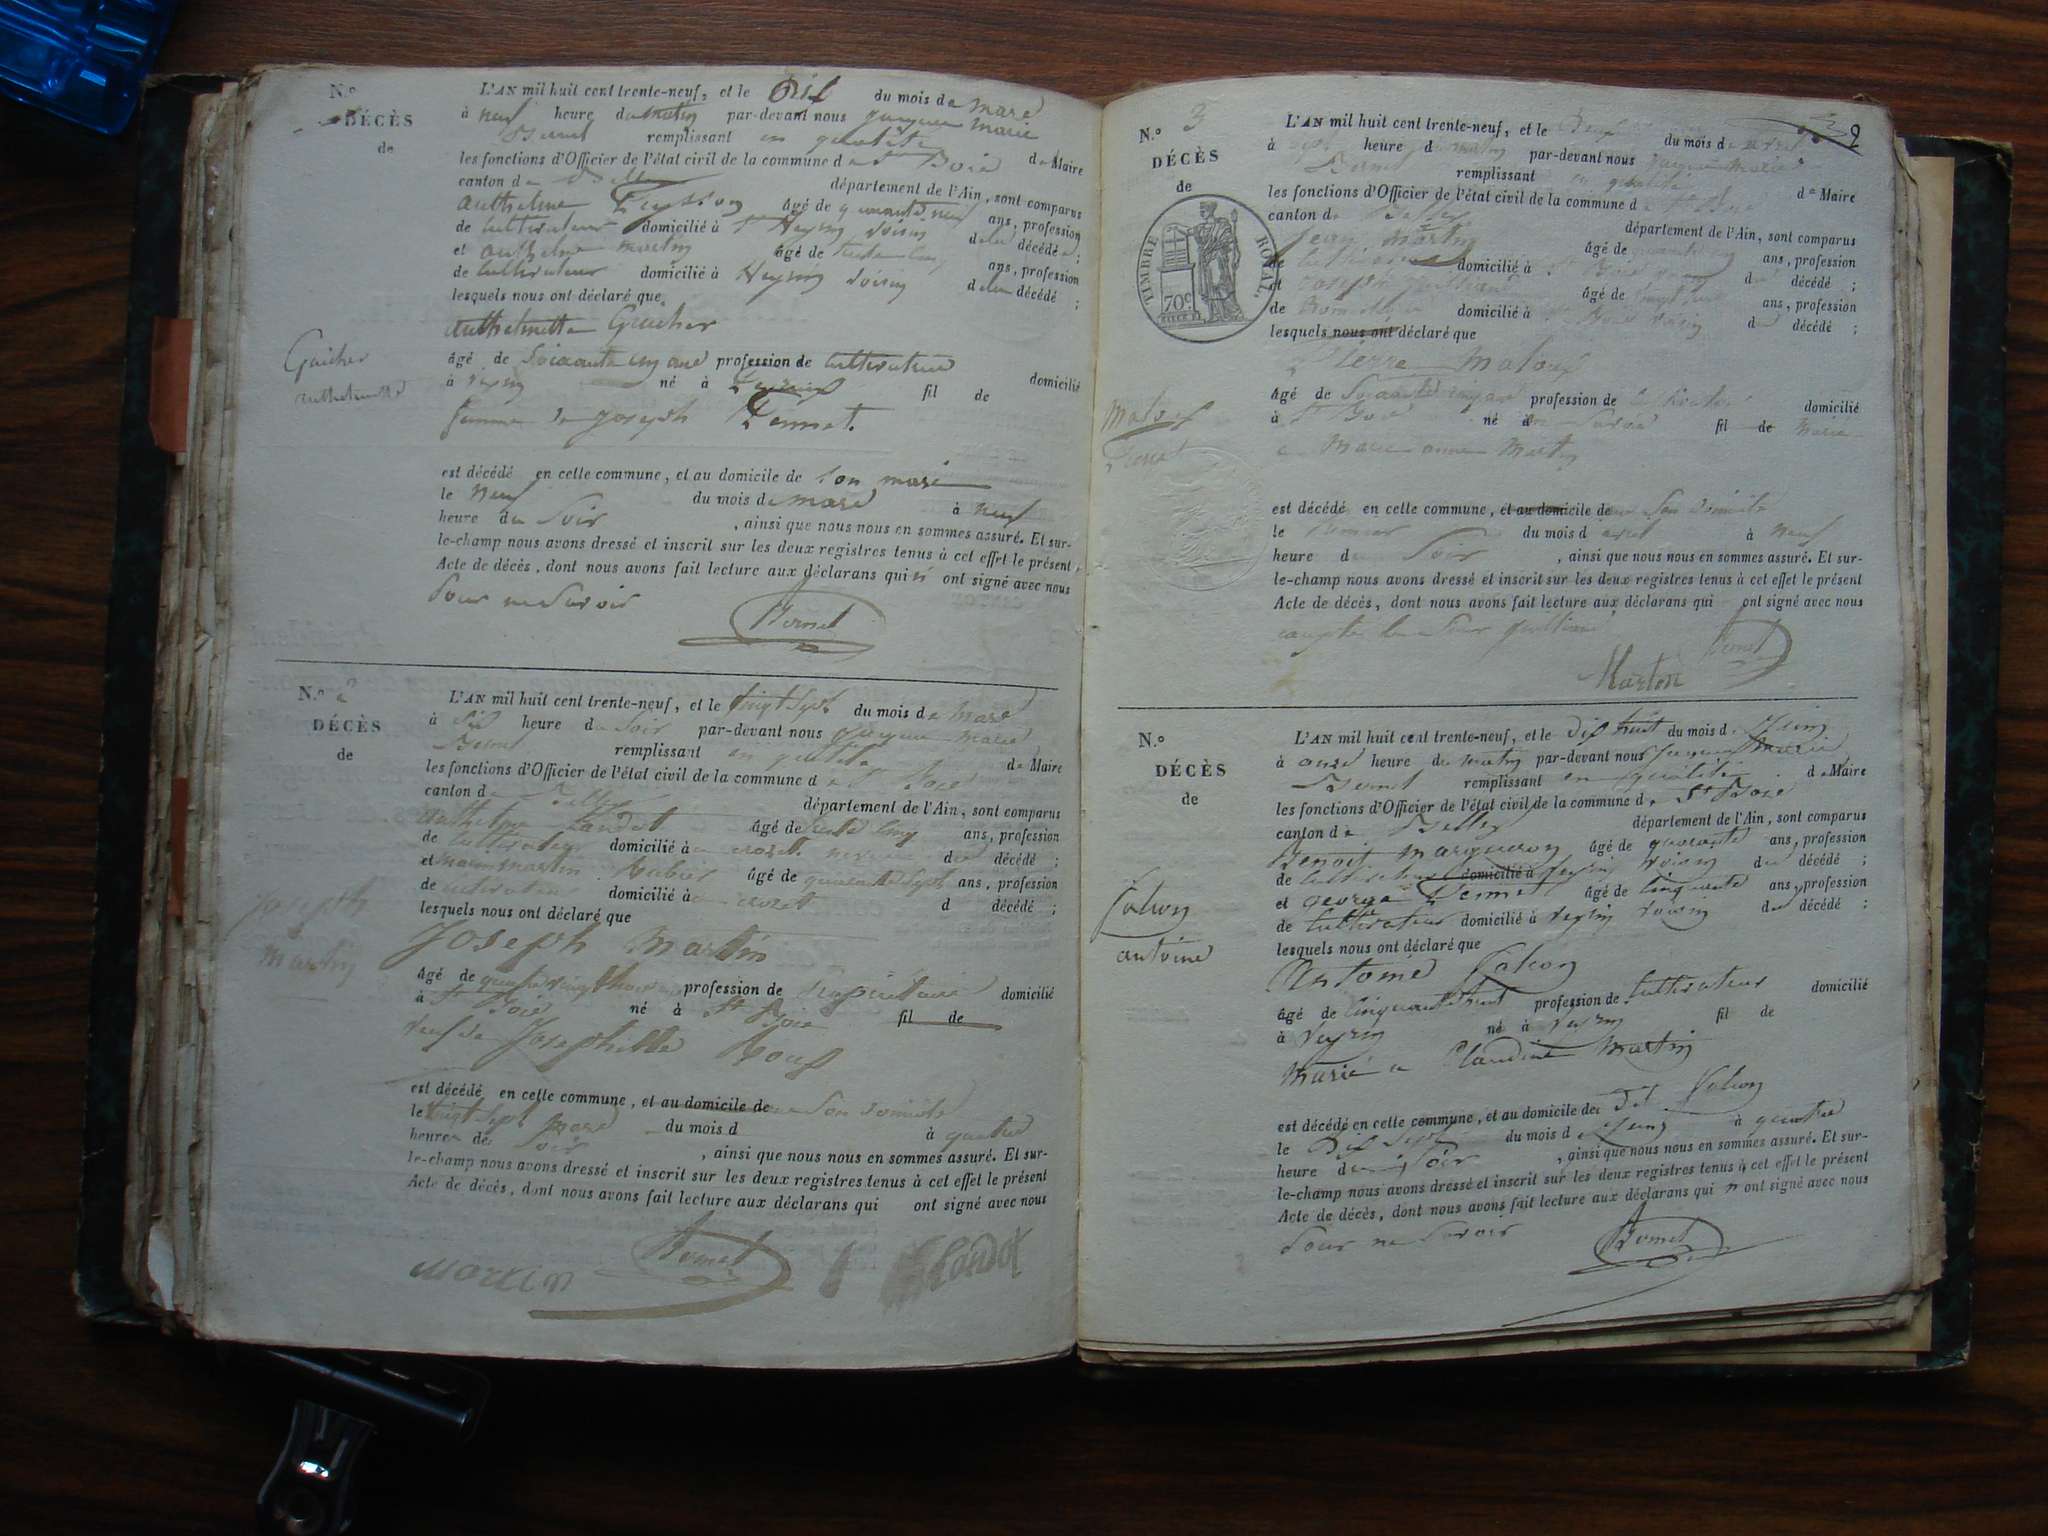 N.o
DÉCÈS
de
L'AN mil huit cent trente-neuf, et le Dix du mois de mars
à neuf heure du matin par-devant nous jacques marie
Bernet remplissant en qualité
les fonctions d'Officier de l'état civil de la commune de St Boie de Maire
canton de Belley département de l'Ain, sont comparus
anthelme âgé de quarante neuf ans, profession
de cultivateur domicilié à Veyrin voisin de la décédée ;
et anthelme martin âgé de trente cinq ans, profession
de cultivateur domicilié à Veyrin voisin de la décédé ;
lesquels nous ont déclaré que
anthelmette Gaucher
Gaucher
anthelmette
âgé de Soixante cinq ans profession de cultivateur domicilié
à veyrin né à fil de
femme de joseph
est décédé en cette commune, et au domicile de son mari
le neuf du mois de mars à neuf
heure du Soir , ainsi que nous nous en sommes assuré. Et sur-
le-champ nous avons dressé et inscrit sur les deux registres tenus à cet effet le présent
Acte de décès, dont nous avons fait lecture aux déclarans qui ont signé avec nous
Pour ne Savoir
Bernet
N.o 2
DÉCÈS
de
L'AN mil huit cent trente-neuf, et le vingt Sept du mois de mars
à Six heure du Soir par-devant nous jacques marie
Bernet remplissant en qualité de Maire
les fonctions d'Officier de l'état civil de la commune de St Boie
canton de Belley département de l'Ain, sont comparus
anthelme Landot âgé de trente cinq ans, profession
de cultivateur domicilié à crozet neveu du décédé ;
et martin âgé de quarante Sept ans, profession
de cultivateur domicilié à crozet d décédé ;
lesquels nous ont déclaré que
Joseph Martin
joseph
martin
âgé de quatre vingt profession de propriétaire domicilié
à St Boie né à St Boie fil de
veuf de Josephitte Roux
est décédé en cette commune, et au domicile de Son domicile
le vingt Sept mars du mois d à quatre
heure de Soir , ainsi que nous nous en sommes assuré. Et sur-
le-champ nous avons dressé et inscrit sur les deux registres tenus à cet effet le présent
Acte de décès, dont nous avons fait lecture aux déclarans qui ont signé avec nous
Martin Bernet Landot
9
N.o 3
DÉCÈS
de
TIMBRE ROYAL
70c
L'AN mil huit cent trente-neuf, et le Deux du mois de avril
à heure du matin par-devant nous jacques marie
Bernet remplissant en qualité de Maire
les fonctions d'Officier de l'état civil de la commune de St Boie
canton de Belley département de l'Ain, sont comparus
Jean Martin âgé de ans, profession
de cultivateur domicilié à St Boie du décédé ;
et joseph âgé de ans, profession
de domicilié à St Boie voisin du décédé ;
lesquels nous ont déclaré que
Pierre Maloux
Maloux
Pierre
âgé de Soixante cinq ans profession de cultivateur domicilié
à St Boie né en Savoie fil de Marié
a Marie anne Martin
est décédé en cette commune, et au domicile de Son domicile
le premier du mois d avril à neuf
heure du Soir , ainsi que nous nous en sommes assuré. Et sur-
le-champ nous avons dressé et inscrit sur les deux registres tenus à cet effet le présent
Acte de décès, dont nous avons fait lecture aux déclarans qui ont signé avec nous
Bernet
Martin
N.o
DÉCÈS
de
L'AN mil huit cent trente-neuf, et le Dix huit du mois de Juin
à onze heure du matin par-devant nous jacques marie
Bernet remplissant en qualité de Maire
les fonctions d'Officier de l'état civil de la commune de St Boie
canton de Belley département de l'Ain, sont comparus
Benoit Marqueron âgé de quarante ans, profession
de cultivateur domicilié à Veyrin voisin du décédé ;
et george âgé de cinquante ans, profession
de cultivateur domicilié à veyrin voisin du décédé ;
lesquels nous ont déclaré que
Antoine Falcon
Falcon
antoine
âgé de cinquante huit profession de cultivateur domicilié
à Veyrin né à veyrin fil de
Marié a Claudine Martin
est décédé en cette commune, et au domicile de dit Falcon
le Dix Sept du mois de Juin à quatre
heure du Soir , ainsi que nous nous en sommes assuré. Et sur-
le-champ nous avons dressé et inscrit sur les deux registres tenus à cet effet le présent
Acte de décès, dont nous avons fait lecture aux déclarans qui n ont signé avec nous
Pour ne Savoir
Bernet